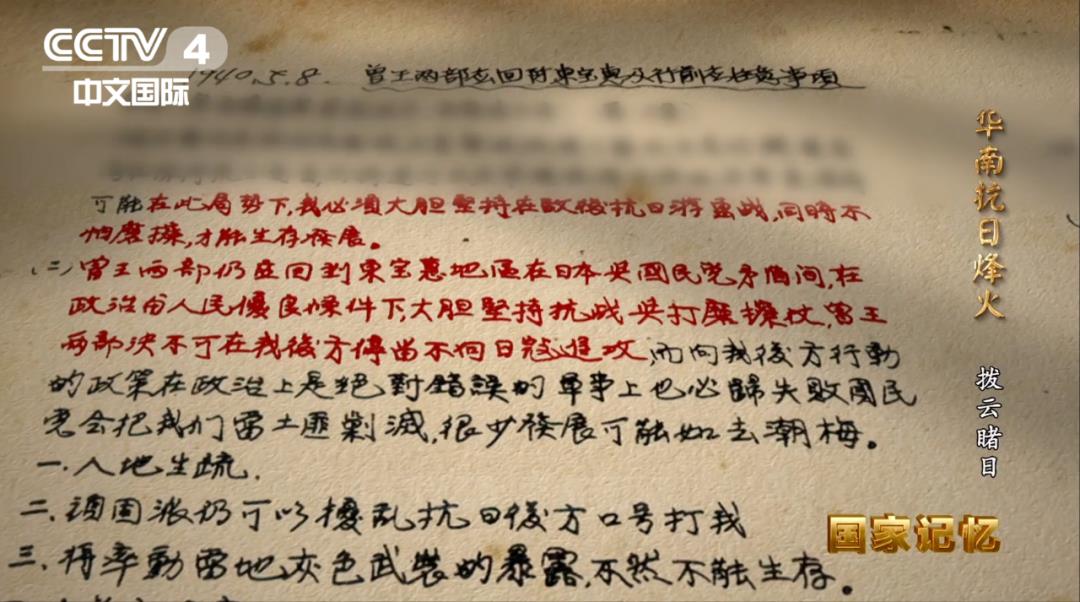 CCTV 4
中文国际
1940.5.8. 曾王两部应回防東宝惠及行前应注意事項
可能在此局势下,我必須大胆堅持在敌後抗日游击战,同時不
怕磨擦,才能生存發展。
(二)曾王两部仍应回到東宝惠地區在日本与國民党矛盾间,在
政治与人民優良條件下,大胆堅持抗战与打磨擦仗,曾王
两部决不可在我後方停留不向日寇進攻,而向我後方行動
的政策在政治上是絕對錯誤的 軍事上也必歸失敗國民
党会把我们當土匪剿滅,很少發展可能如去潮梅。
一.人地生疏.
二.頑固派仍可以擾乱抗日後方口号打我
三.将牽動當地灰色武裝的暴露,不然不能生存。
华南抗日烽火
拨云睹日
国家记忆